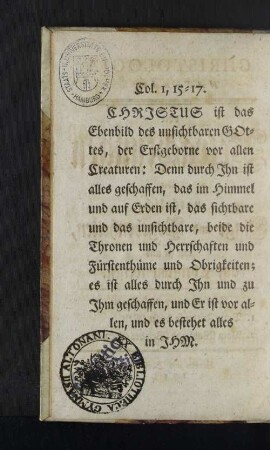 Col. 1, 15-17.
CHRISTUS ist das
Ebenbild des unsichtbaren GOt-
tes, der Erstgeborne vor allen
Creaturen: Denn durch Ihn ist
alles geschaffen, das im Himmel
und auf Erden ist, das sichtbare
und das unsichtbare, beide die
Thronen und Herrschaften und
Fürstenthüme und Obrigkeiten;
es ist alles durch Ihn und zu
Ihm geschaffen, und Er ist vor al-
len, und es bestehet alles
in IHM.
EX BIBLIOTHECA GYMNASII ALTONANI
HAMBURG